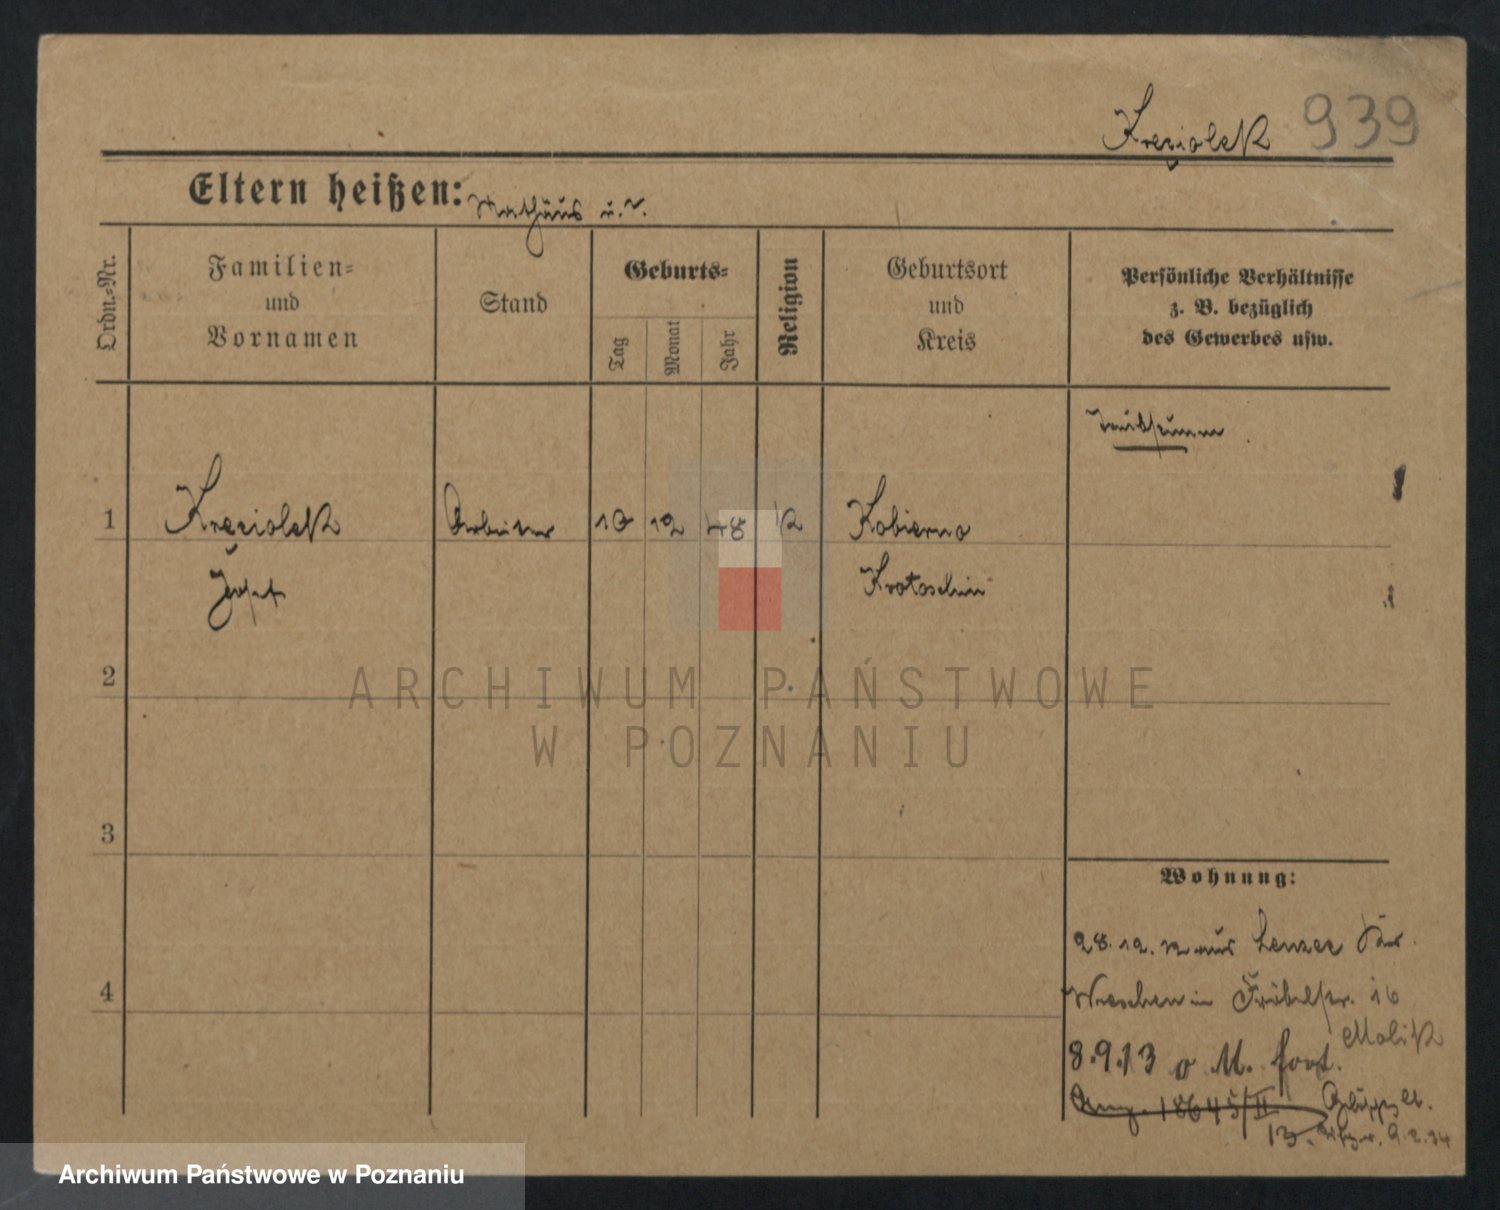 Kręziolek 939
Eltern heißen: Mathäus u. v.
Ordn.-Nr.
Familien-
und
Vornamen
Stand
Geburts-
Tag
Monat
Jahr
Religion
Geburtsort
und
Kreis
Persönliche Verhältnisse
z. B. bezüglich
des Gewerbes usw.
1 Kręziolek Arbeiter 10 12 48 K Kobierno
Josef Krotoschin
2
3
4
Wohnung:
28. 12. 12 aus Lenzec Kr.
Wreschen in Fröbelstr. 16
Malik
8.9.13 o M. fort.
Ang. 18645/II
13.
ARCHIWUM PAŃSTWOWE
W POZNANIU
Archiwum Państwowe w Poznaniu